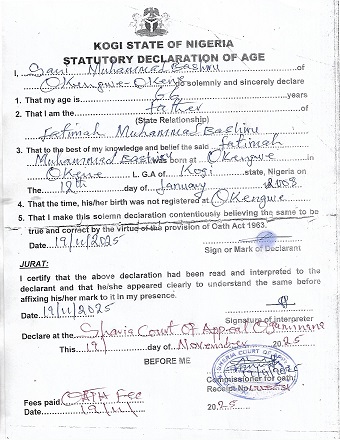 KOGI STATE OF NIGERIA
STATUTORY DECLARATION OF AGE
I, Sani Muhammed Bashiru of
Okengwe-Okene solemnly and sincerely declare
1. That my age is 66 years
2. That I am the father
(State Relationship)
Fatimah Muhammed Bashiru
3. That to the best of my knowledge and belief the said fatimah
Muhammed Bashiru was born at Okengwe in
Okene L. G.A of Kogi state, Nigeria on
The 12th day of January 2003
4. That the time, his/her birth was not registered at Okengwe
5. That I make this solemn declaration contentiously believing the same to be
true and correct by the virtue of the provision of Oath Act 1963.
Date 19/11/2025
Sign or Mark of Declarant
JURAT:
I certify that the above declaration had been read and interpreted to the
declarant and that he/she appeared clearly to understand the same before
affixing his/her mark to it in my presence.
Date 19/11/2025
Signature of interpreter
Declare at the Sharia Court Of Appeal Ogaminana
This 19 day of November 2025
BEFORE ME
SHARIA COURT OF
Commissioner for oath
Receipt No
Fees paid OATH Fee
Date 19/11/ 2025